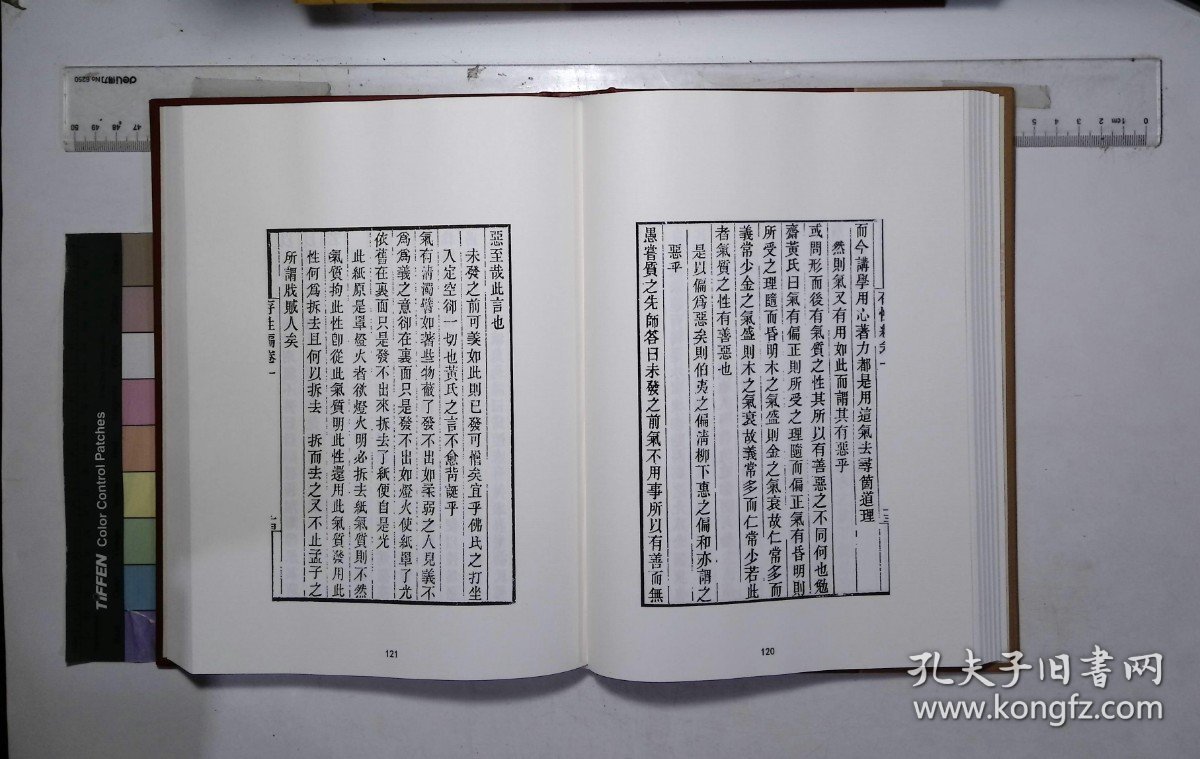 而今講學用心著力都是用這氣去尋箇道理
然則氣又有用如此而謂其有惡乎
或問形而後有氣質之性其所以有善惡之不同何也勉
齋黃氏曰氣有偏正則所受之理隨而偏正氣有昏明則
所受之理隨而昏明木之氣盛則金之氣衰故仁常多而
義常少金之氣盛則木之氣衰故義常多而仁常少若此
者氣質之性有善惡也
是以偏為惡矣則伯夷之偏清柳下惠之偏和亦謂之
惡乎
愚嘗質之先師答曰未發之前氣不用事所以有善而無
120
惡至哉此言也
未發之前可羨如此則已發可惜矣宜乎佛氏之打坐
入定空卻一切也黃氏之言不愈背誕乎
氣有清濁譬如著些物蔽了發不出如柔弱之人見義不
為為義之意卻在裏面只是發不出如燈火使紙罩了光
依舊在裏面只是發不出來拆去了紙便自是光
此紙原是罩燈火者欲燈火明必拆去紙氣質則不然
氣質拘此性卽從此氣質明此性還用此氣質發用此
性何為拆去且何以拆去 拆而去之又不止孟子之
所謂戕賊人矣
存性編卷一
121
deli得力 No.6250
50 49 48 47
5 4 3 2 1cm 0
TIFFEN Color Control Patches
孔夫子旧书网
www.kongfz.com